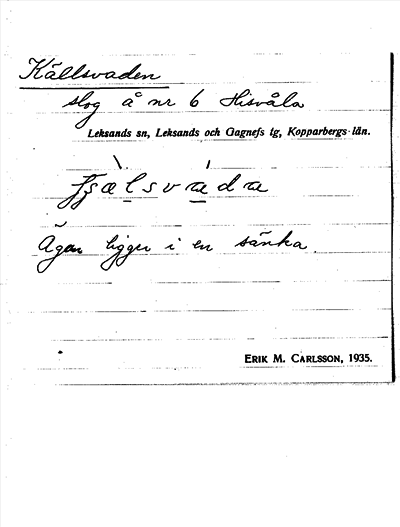 Källsvaden
slog å nr 6 Hisvåla
Leksands sn, Leksands och Gagnefs tg, Kopparbergs län.
Ägan ligger i en sänka.
ERIK M. CARLSSON, 1935.